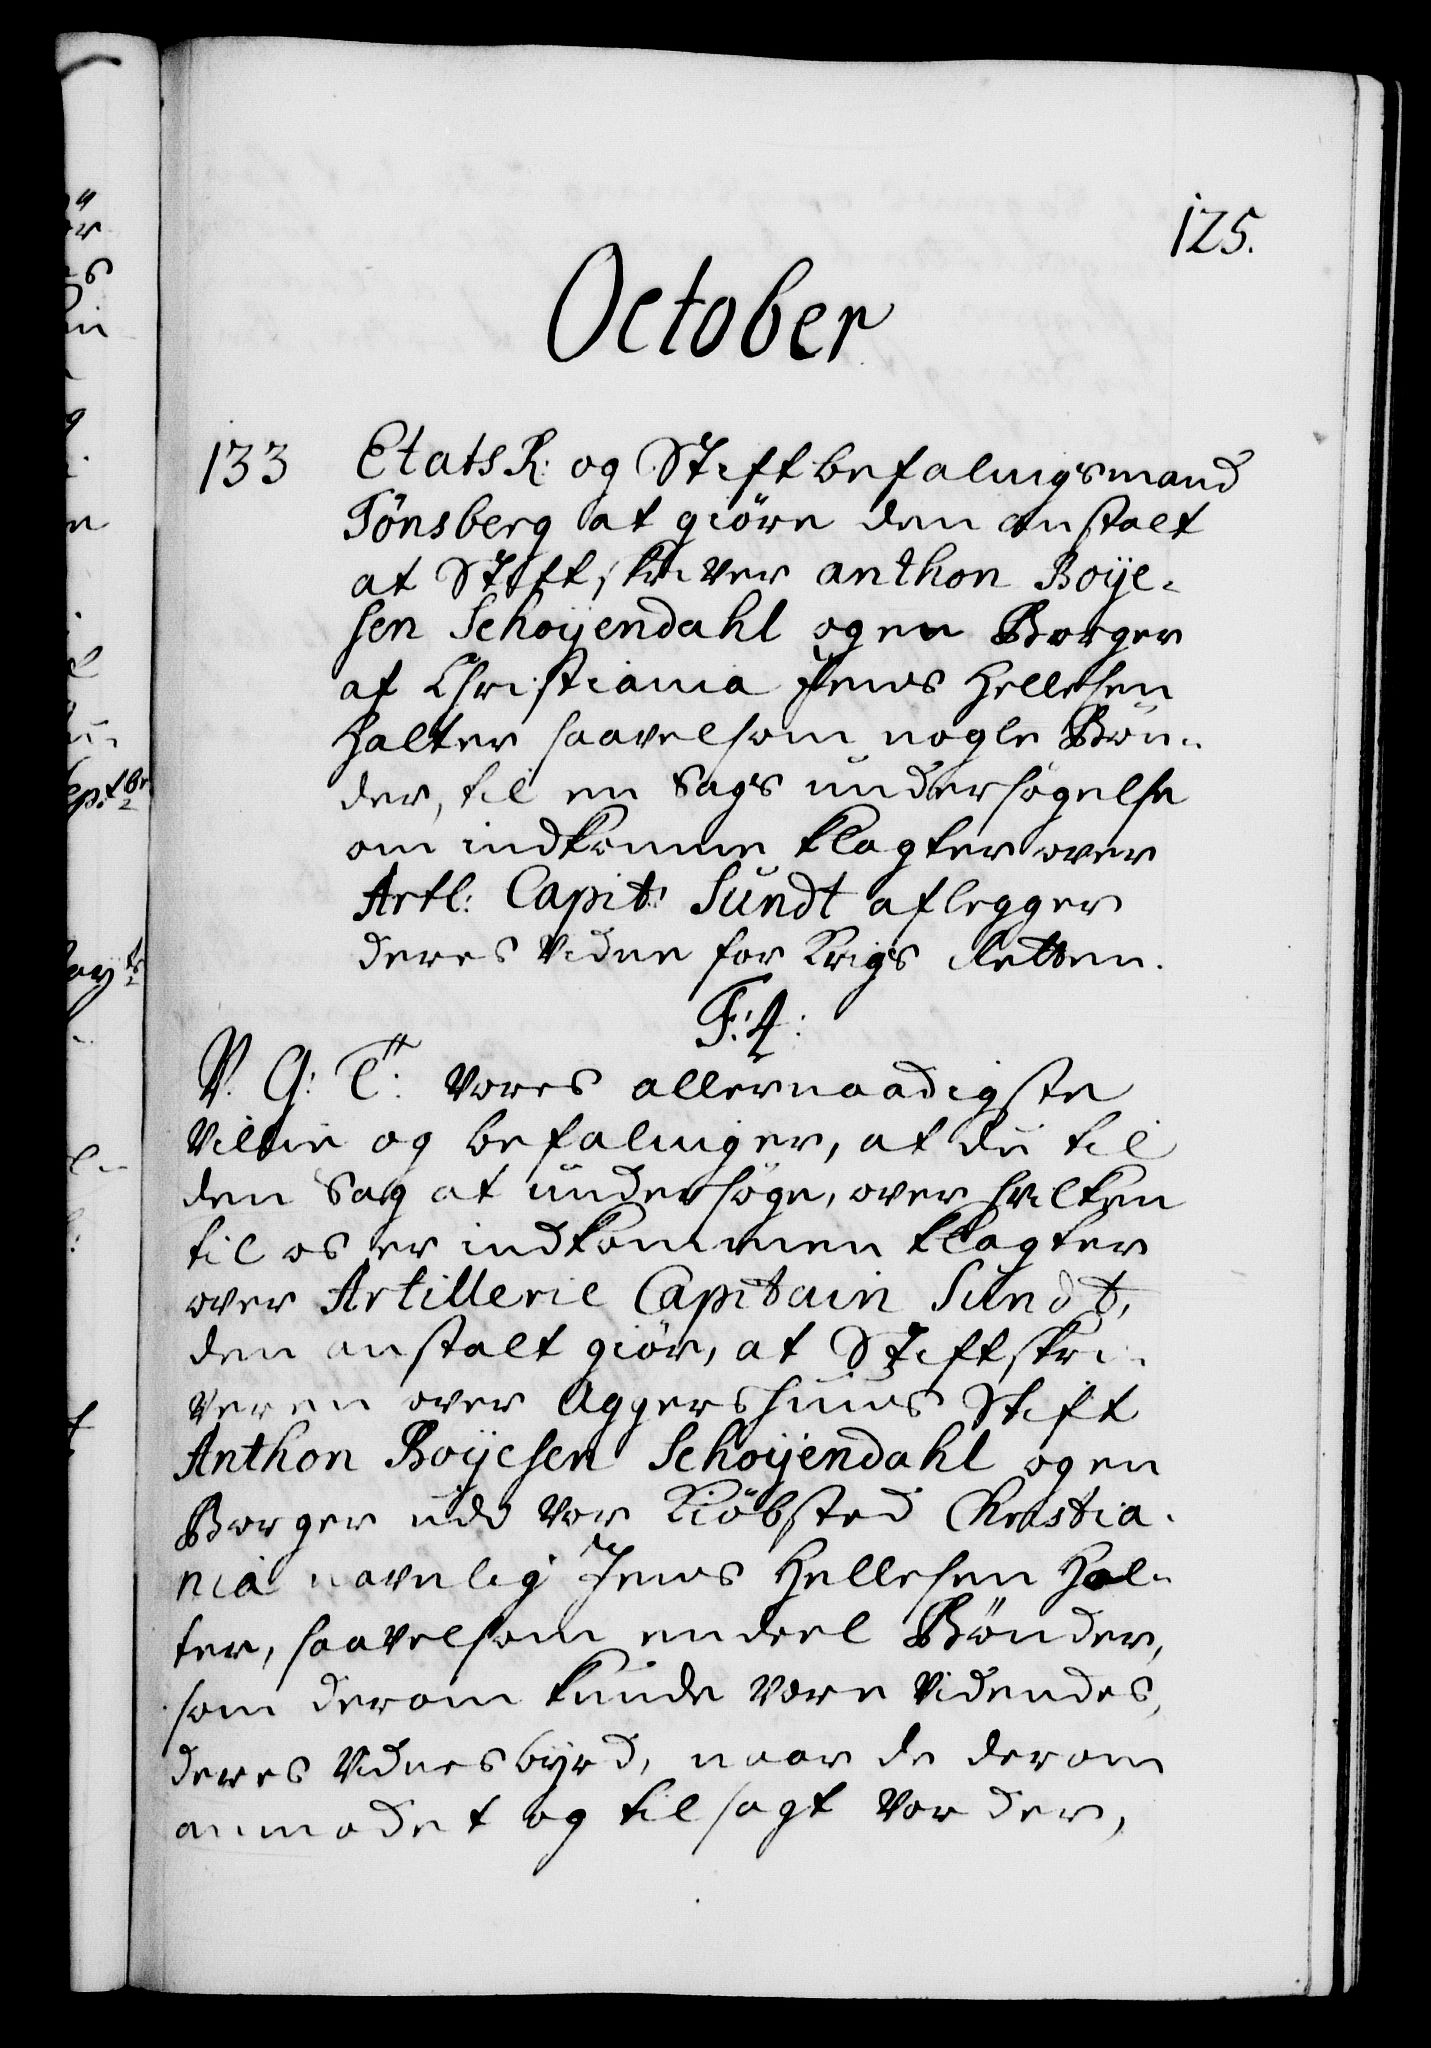 125.
October
133 Etats R: og Stiftbefalingsmand
Tönsberg at giöre den anstalt
at Stiftskriver anthon Boije-
sen Schoijendahl og en Borger
af Christiania Jens Hellesen
Halter saavelsom nogle Bön-
der, til en Sags undersögelse
om indkomne Klagter over
Artl: Capit: Sundt aflegger
deres Vidne for Krigs Retten.
F:4:
V. G: T: Vores allernaadigste
Villie og befalinger, at du til
den Sag at undersöge, over hvilken
til os er indkommen Klagter
over Artillerie Capitain Sundt,
den anstalt giör, at Stiftskri-
veren over Aggershuus Stift
Anthon Boijesen Schoijendahl og en
Borger udd vor Kiöbsted Christia-
nia navnlig Jens Hellesen Hal-
ter, saavelsom en deel Bönder,
som derom kunde være videndes,
deres Vidnesbyrd, naar de derom
anmodet og tilsagt vorder,